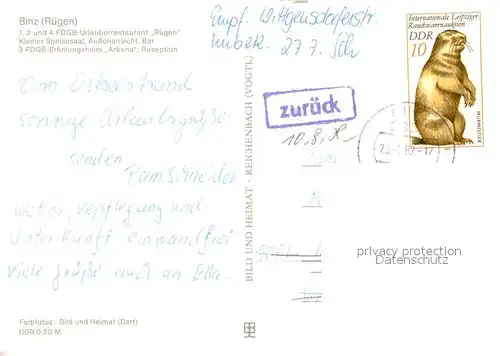 Binz (Rügen)
1, 2 und 4 FDGB-Urlauberrestaurant „Rügen"
Kleiner Speisesaal, Außenansicht, Bar
3 FDGB-Erholungsheim „Arkona", Rezeption
Empf. Wittgensdorferstr
unbek. 27.7.
Internationale Leipziger
Rauchwarenauktion
DDR
10
MURMELTIER
zurück
10.8.
Vom Ostseestrand
sonnige Urlaubsgrüße
senden
Fam. Schneider
Wetter, Verpflegung und
Unterkunft einwandfrei
Viele Grüße auch an Ella.
BILD UND HEIMAT · REICHENBACH (VOGTL)
privacy protection
Datenschutz
Farbfotos: Bild und Heimat (Darr)
DDR 0,20 M